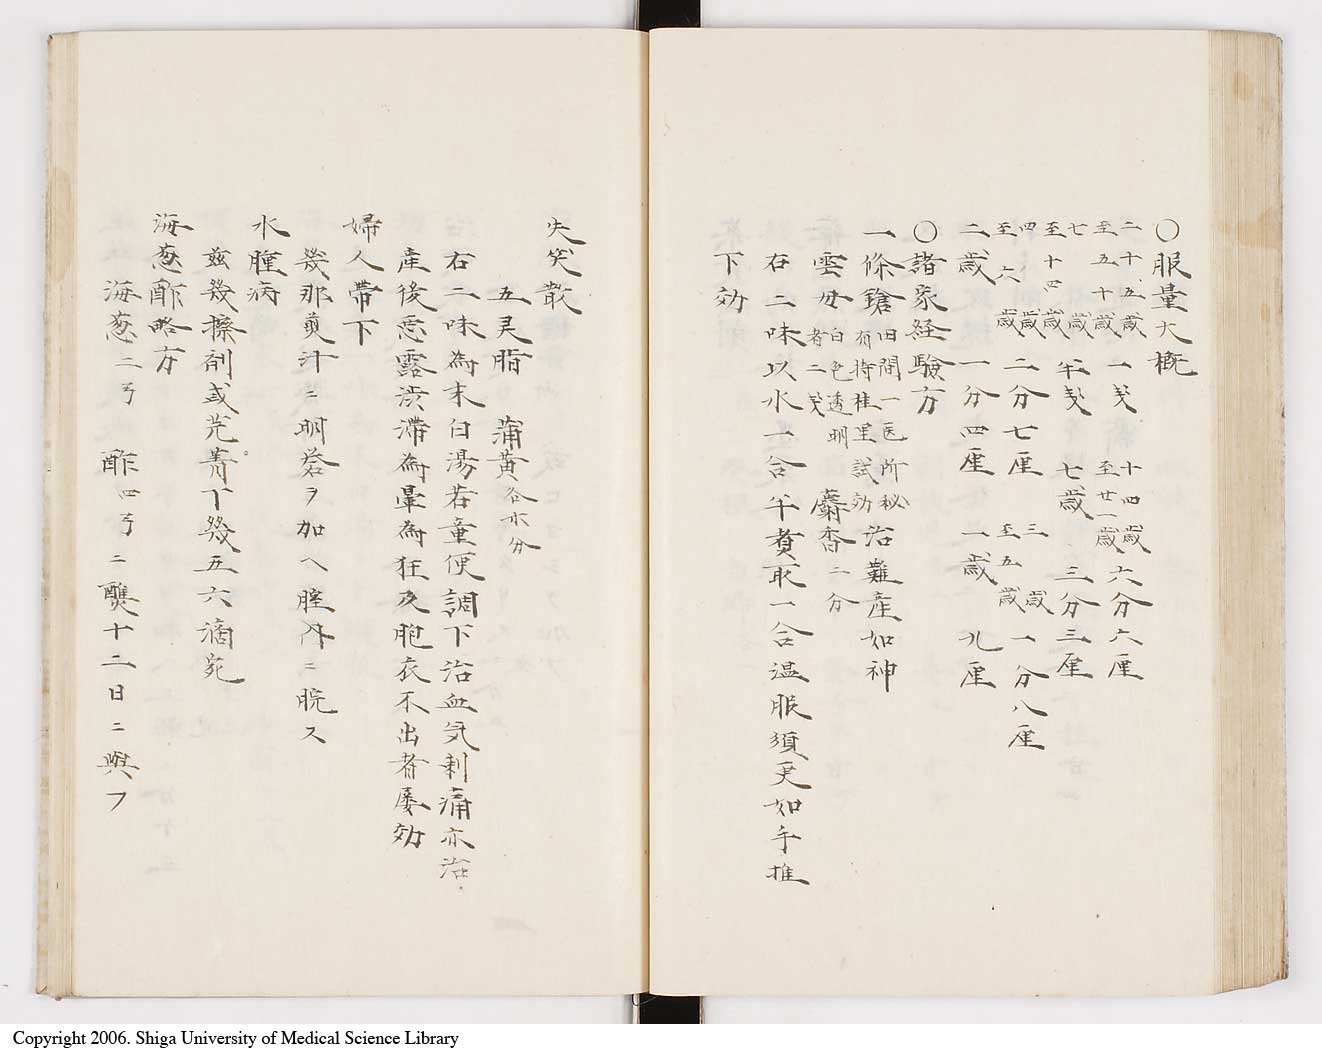 〇服量大概
二十五歳至五十歳 一戔 十四歳至廿一歳 六分六厘
七歳至十四歳 半戔 七歳 三分三厘
四歳至六歳 二分七厘 三歳至五歳 一分八厘
二歳 一分四厘 一歳 九厘
〇諸家経験方
一條鎗 田間一医所秘有持桂里試効 治難産如神
雲母 白色透明者二戔 麝香二分
右二味以水一合半煑取一合温服須臾如手推
下効
失笑散
五灵脂 蒲黄各等分
右二味為末白湯若童便調下治血気刺痛亦治
産後悪露渋滞為暈為狂及胞衣不出者屡効
婦人帯下
幾那煎汁ニ明礬ヲ加ヘ腟内ニ脘ス
水腫病
兹幾擦剤或芫菁丁幾五六滴
海葱酢略方
海葱二弓 酢四弓ニ十二日ニ與フ
Copyright 2006. Shiga University of Medical Science Library